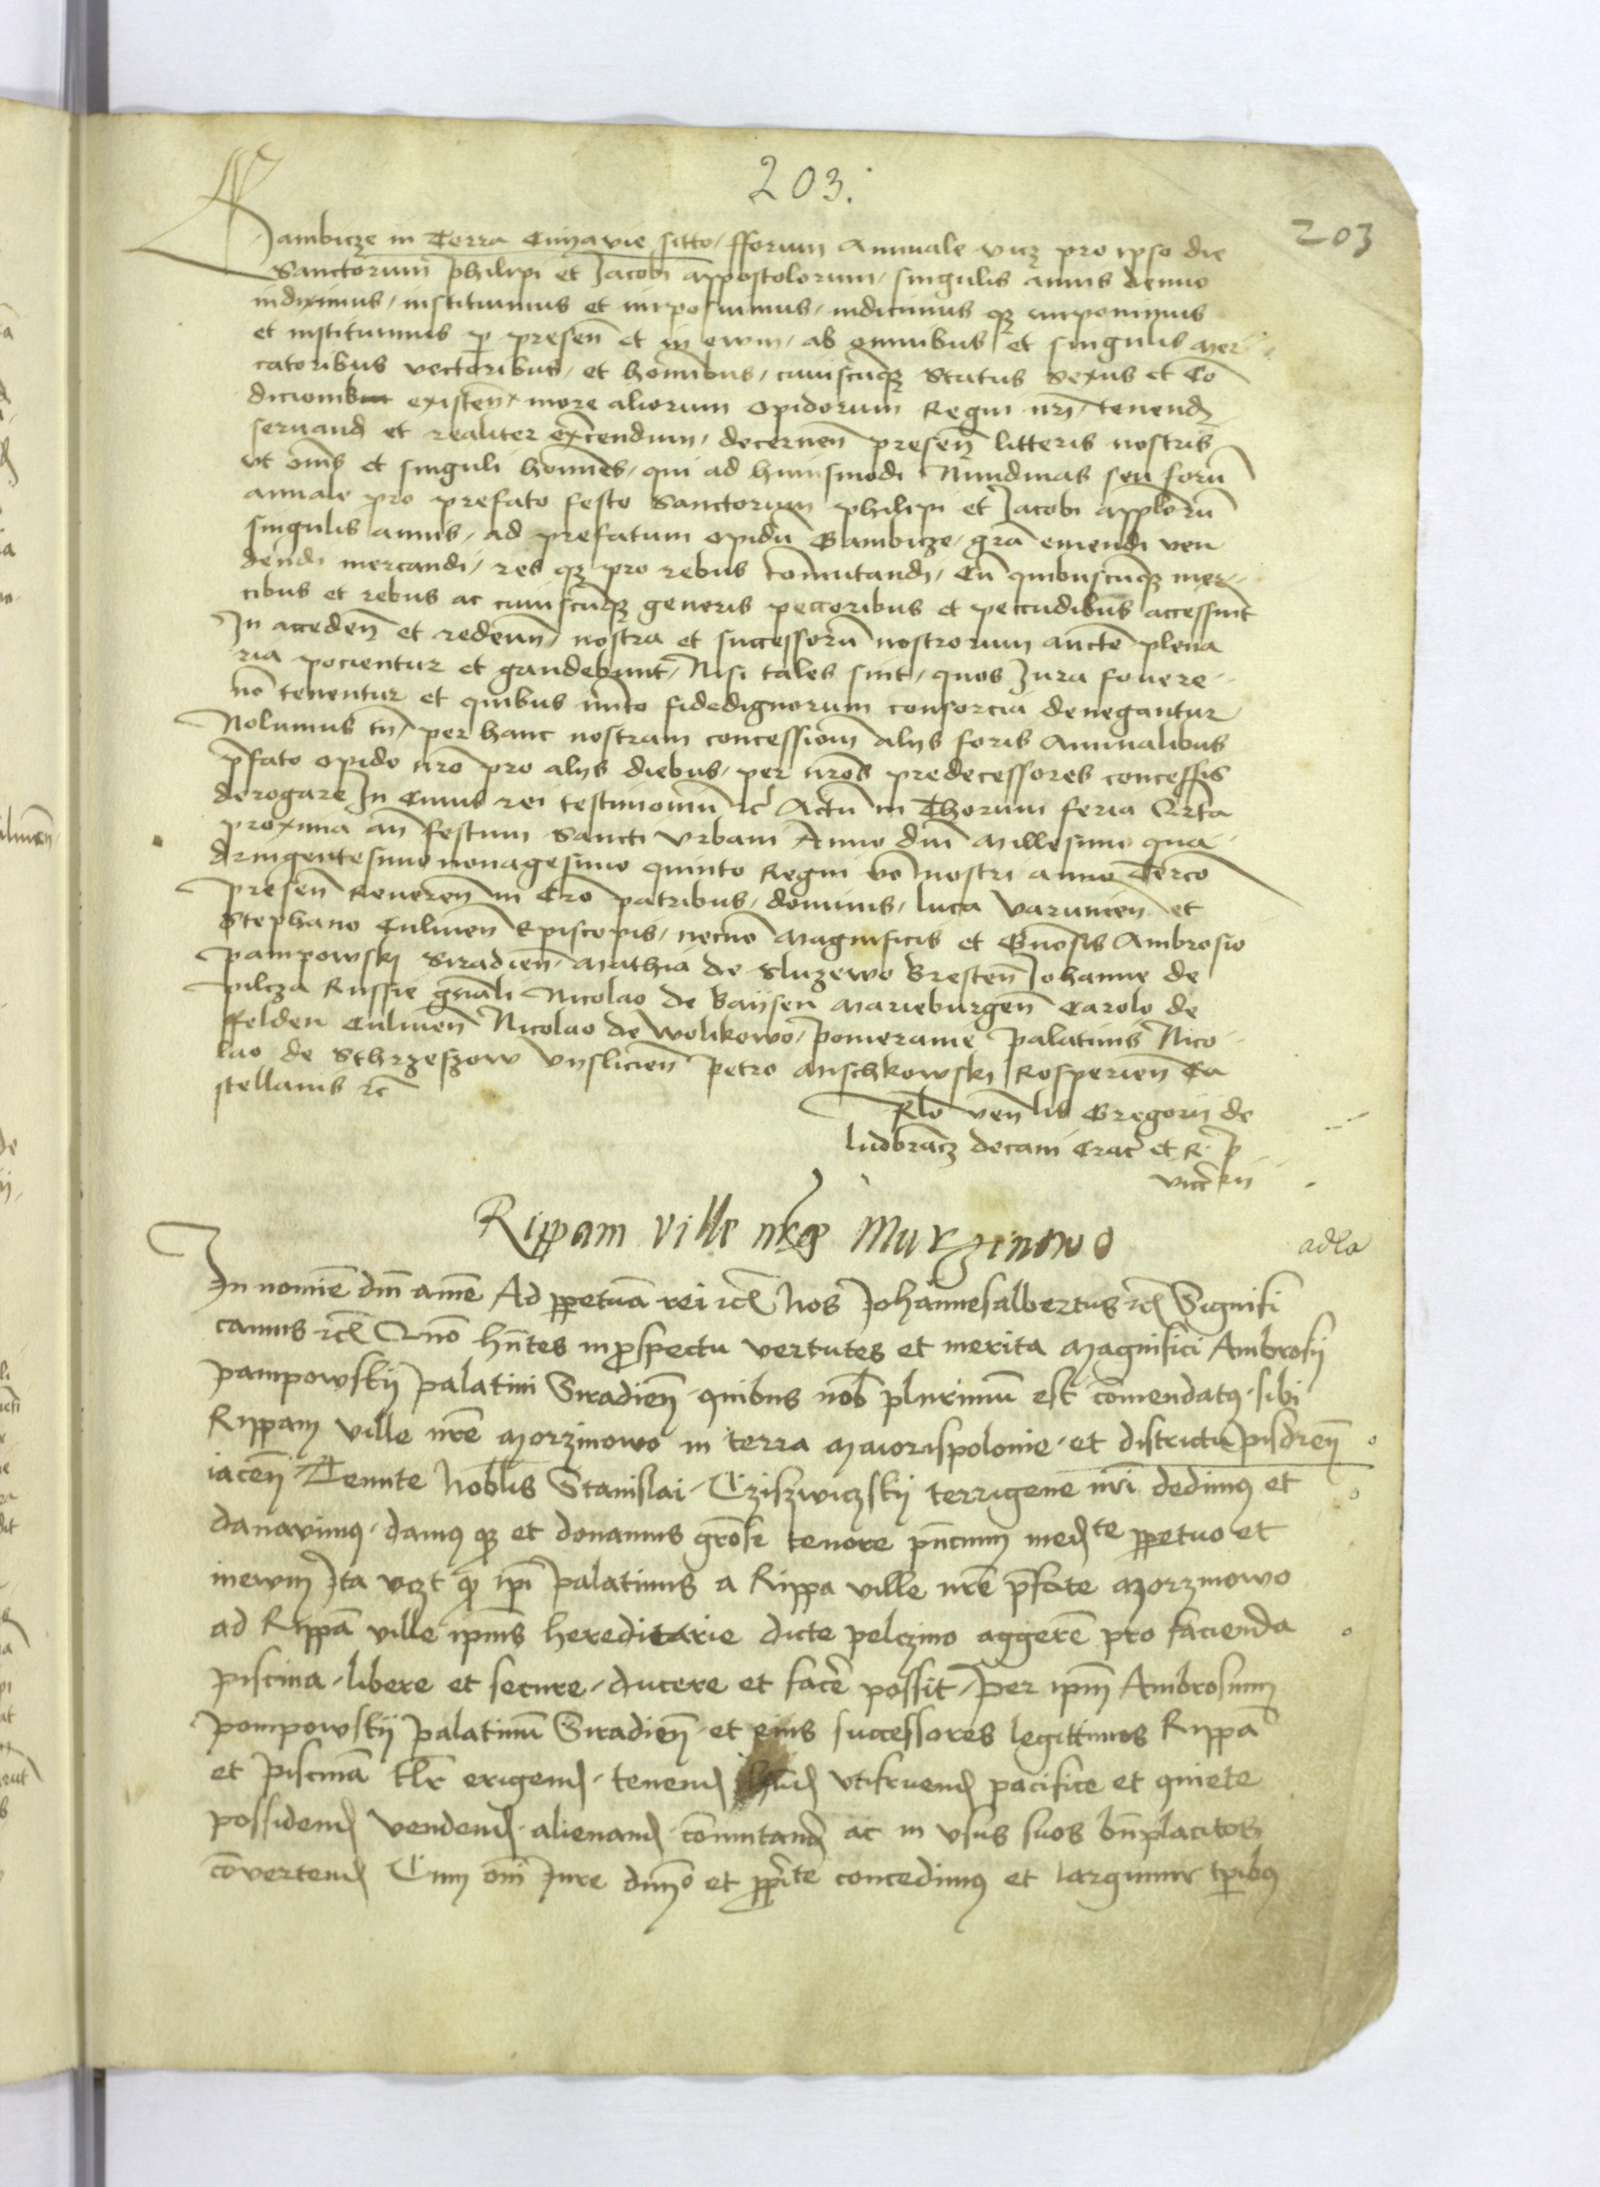 203.
203
Gambicze in Terra Cuiavie sitto, fforum Annuale vicz pro ipso die
Sanctorum Philipi et Jacobi appostolorum, singulis annis denuo
indiximus, instituimus et inposuimus, indicimus qz inponimus
et instituimus p presen̄ et in ewm, ab omnibus et singulis mer
catoribus vectoribus, et hominibus, cuiuscūqz Status Sexus et Cō
dicionibus existen̄, more aliorum opidorum Regni nr̄i, tenend
seruand et realiter exercendum, decernen̄ presen̄ litteris nostris
vt om̄s et singuli homines, qui ad huiusmodi Nundinas seu forū
annale pro prefato festo Sanctorum philipi et Jacobi applorū
singulis annis, ad prefatum opidū Gambicze, grā emendi ven
dendi mercandi, res qz pro rebus comutandi, Cū quibuscūqz mer
cibus et rebus ac cuiuscūqz generis peccoribus et peccudibus accesserint
In acceden̄ et redeun̄, nostra et successorū nostrorum aucte plena
ria pocientur et gaudebunt, Nisi tales sint, quos Jura fouere
nō tenentur et quibus mīto fidedignorum consorcia denegantur
Nolumus tn̄, per hanc nostram concessionē alijs foris Annualibus
p̄fato opido nr̄o pro alijs diebus, per nr̄os predecessores concessis
derogare In Cuius rei testimoniū rc̄ Actū in Thorun feria Qrta
proxima an̄ festum Sancti Vrbani Anno dn̄i Millesimo qua
dringentesimo nonagesimo quinto Regni vō nostri anno Tercō
presen̄ Reueren̄ in Cr̄o patribus, dominis, luca Varmien̄ et
Stephano Culmen̄ Episcopis, necnō Magnificis et Gn̄osis Ambrosio
pampowski Siradien̄, Mathia de Sluzewo Bresten̄ Johanne de
pilcza Russie gn̄ali Nicolao de Baysen Marieburgen̄ Carolo de
ffelden Culmen̄ Nicolao de Wolikowo, pomeranie palatinis Nico
lao de Sthrzeszow Vislicien̄ petro Mischkowski Rosperien̄ Ca
stellanis rc̄
Rlo ven̄lis Gregorij de
ludbrancz decani Crac̄ et R. p
vicc̄rij
Rippam ville nr̄e Murzinowo
adla
In nomīe dn̄i amē Ad ppetuā rei rc̄ Nos Johannesalbertus rc̄ Signifi
camus rc̄ Qnō hn̄tes in pspectu vertutes et merita Magnifici Ambrosij
pampowskij palatini Siradien̄ quibus nob̄ plurimū est comendatꝯ, sibi
Rippam ville nr̄e Morzinowo in terra Maiorispolonie, et districtu pisdren̄
iacen̄ Tenute Nobilis Stanislai, Cziszwiczskij terrigene nr̄i dedimꝯ et
danavimꝯ, damꝯ qz et donamus gr̄ose tenore pn̄cium medte ppetuo et
inewm Ita vczt qd ip̄e palatinus a Rippa ville nr̄e p̄fate Morzinowo
ad Rippā ville ipius hereditarie dicte pelczino aggerē pro facienda
piscina, libere et secure, ducere et facē possit, per ipm̄ Ambrosium
pompowskij palatinū Siradien̄ et eius successores legittimos Rippā
et piscinā tlr̄ erigend, tenend hn̄d vtifruend pacifice et quiete
possidend vendend, alienand comutand ac in vsus suos bn̄placitos
cōvertend Cum om̄i Jure dn̄io et ppr̄te concedimꝯ et largimur tp̄ibꝯ